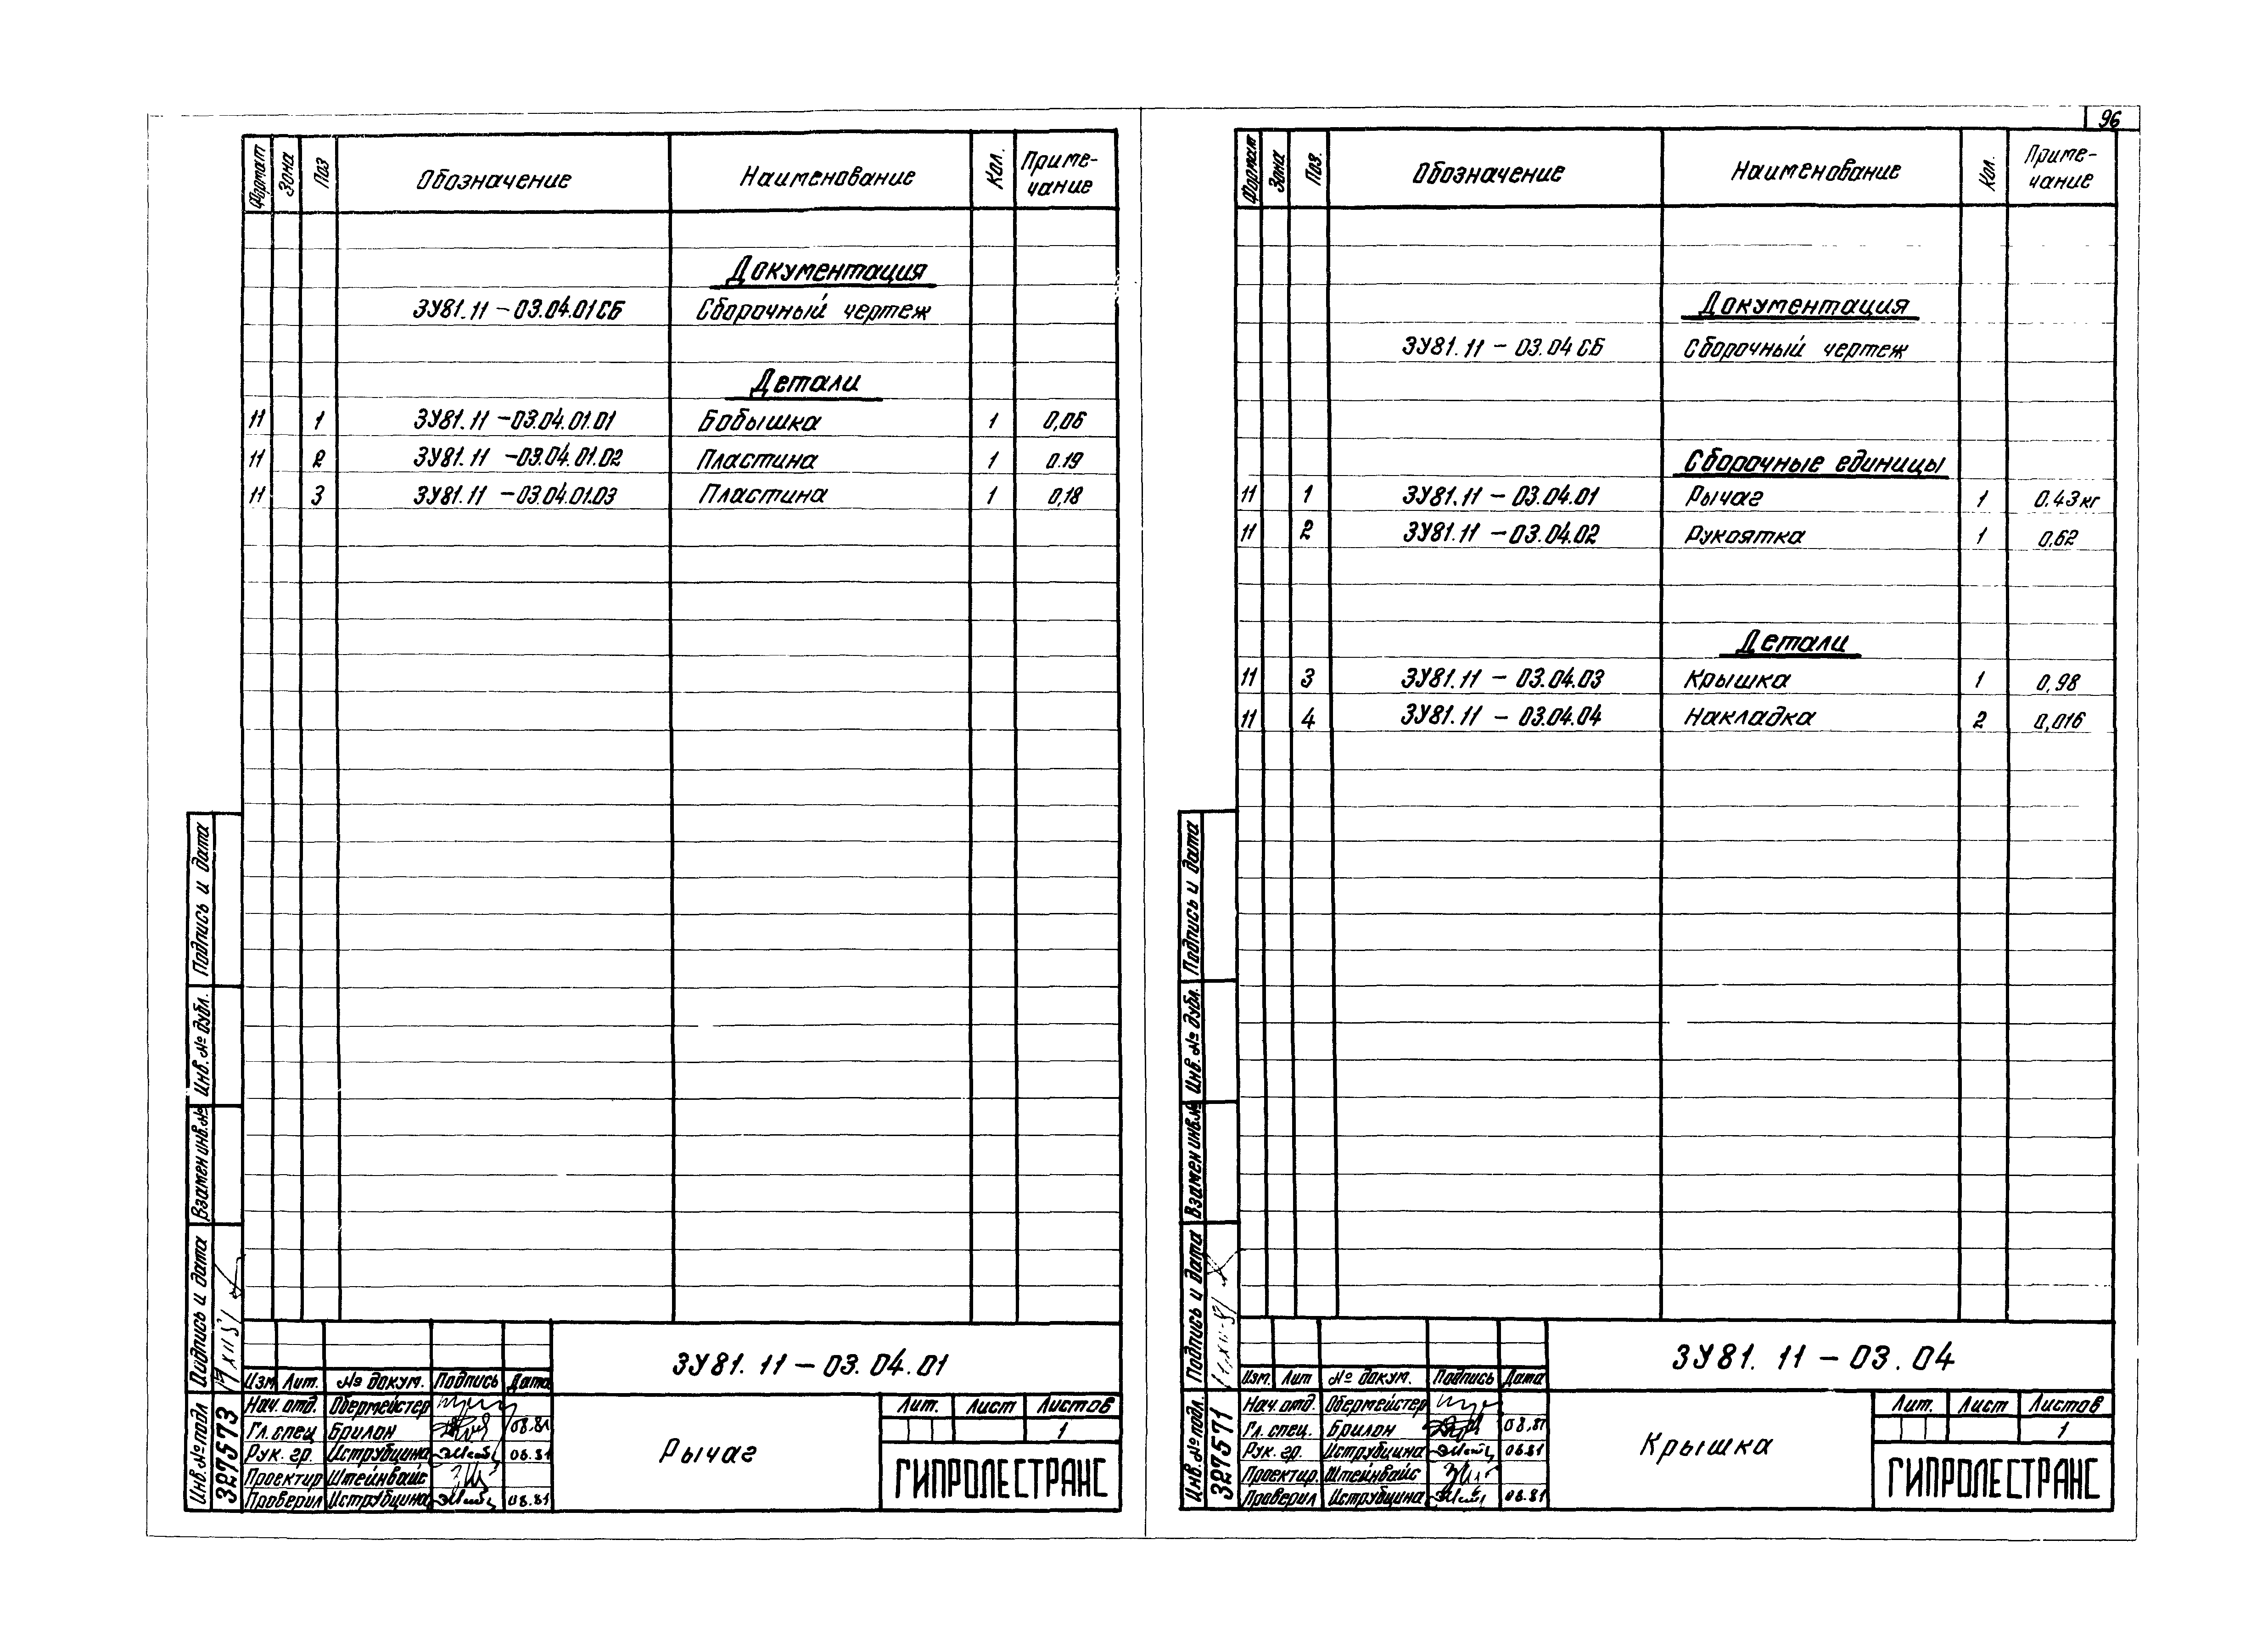 96
Формат Зона Поз Обозначение Наименование Кол. Приме-
чание
Документация
ЗУ81.11 – 03.04.01СБ Сборочный чертеж
Детали
11 1 ЗУ81.11 – 03.04.01.01 Бобышка 1 0,06
11 2 ЗУ81.11 – 03.04.01.02 Пластина 1 0.19
11 3 ЗУ81.11 – 03.04.01.03 Пластина 1 0,18
Подпись и дата
Инв. № дубл.
Взамен инв.№
Подпись и дата
Инв. № подл
327573
ЗУ81.11 – 03.04.01
Изм Лит. № докум. Подпись Дата
Нач. отд. Обермейстер
Гл. спец Брилон 08.81
Рук. гр. Иструбцина 08.81
Проектир Штейнвайс
Проверил Иструбцина 08.81
Рычаг
Лит. Лист Листов
1
ГИПРОЛЕСТРАНС
Формат Зона Поз. Обозначение Наименование Кол. Приме-
чание
Документация
ЗУ81.11 – 03.04 СБ Сборочный чертеж
Сборочные единицы
11 1 ЗУ81.11 – 03.04.01 Рычаг 1 0.43кг
11 2 ЗУ81.11 – 03.04.02 Рукоятка 1 0,62
Детали
11 3 ЗУ81.11 – 03.04.03 Крышка 1 0,98
11 4 ЗУ81.11 – 03.04.04 Накладка 2 0,016
Подпись и дата
Инв. № дубл.
Взамен инв.№
Подпись и дата
Инв. № подл.
327571
ЗУ81.11 – 03.04
Изм. Лит № докум. Подпись Дата
Нач. отд. Обермейстер
Гл. спец. Брилон 08.81
Рук. гр. Иструбцина 08.81
Проектир. Штейнвайс
Проверил Иструбцина 08.81
Крышка
Лит. Лист Листов
1
ГИПРОЛЕСТРАНС